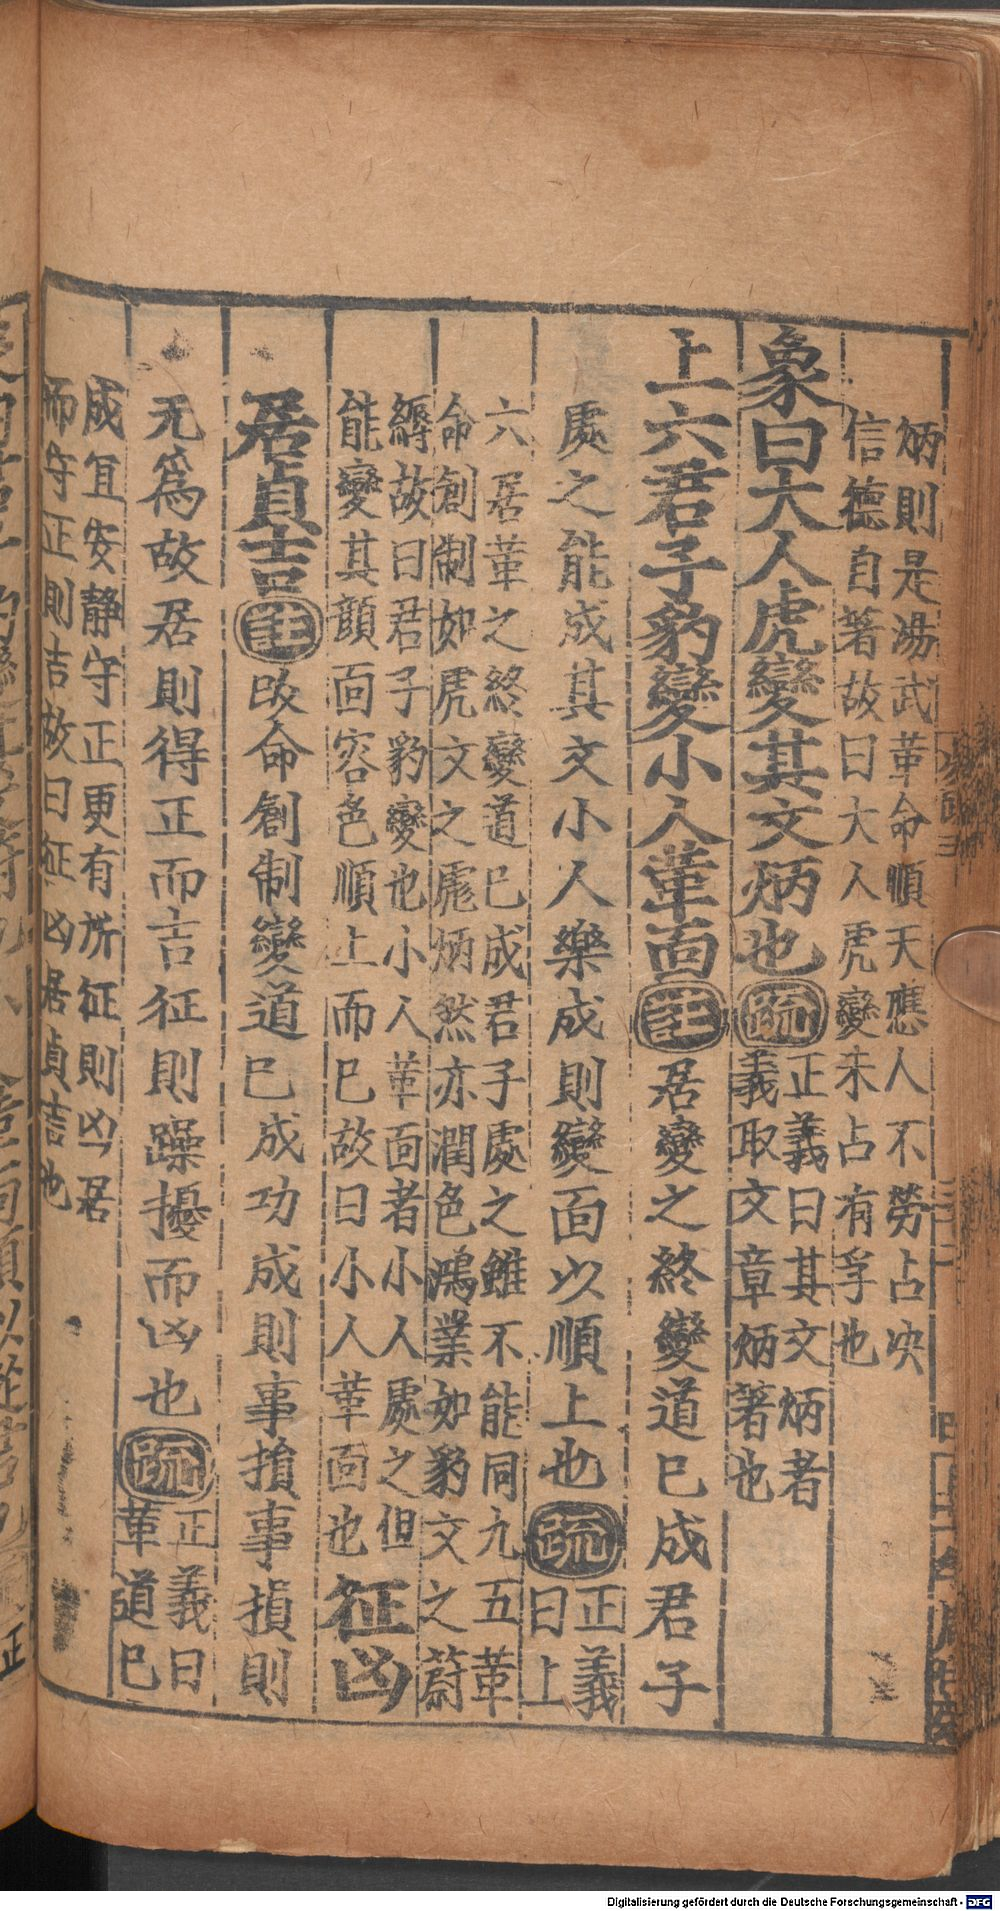 炳則是湯武革命順天應人不勞占决
信德自著故曰大人虎變未占有孚也
象曰大人虎變其文炳也疏正義曰其文炳者
義取文章炳著也
上六君子豹變小人革面註居變之終變道已成君子
處之能成其文小人樂成則變面以順上也疏正義
曰上
六居革之終變道已成君子處之雖不能同九五革
命創制如虎文之彪炳然亦潤色鴻業如豹文之蔚
縟故曰君子豹變也小人革面者小人處之但
能變其顔面容色順上而已故曰小人革面也
征凶
居貞吉註改命創制變道已成功成則事損事損則
无爲故居則得正而吉征則躁擾而凶也疏正義曰
革道已
成宜安静守正更有所征則凶居
而守正則吉故曰征凶居貞吉也
Digitalisierung gefördert durch die Deutsche Forschungsgemeinschaft - DFG